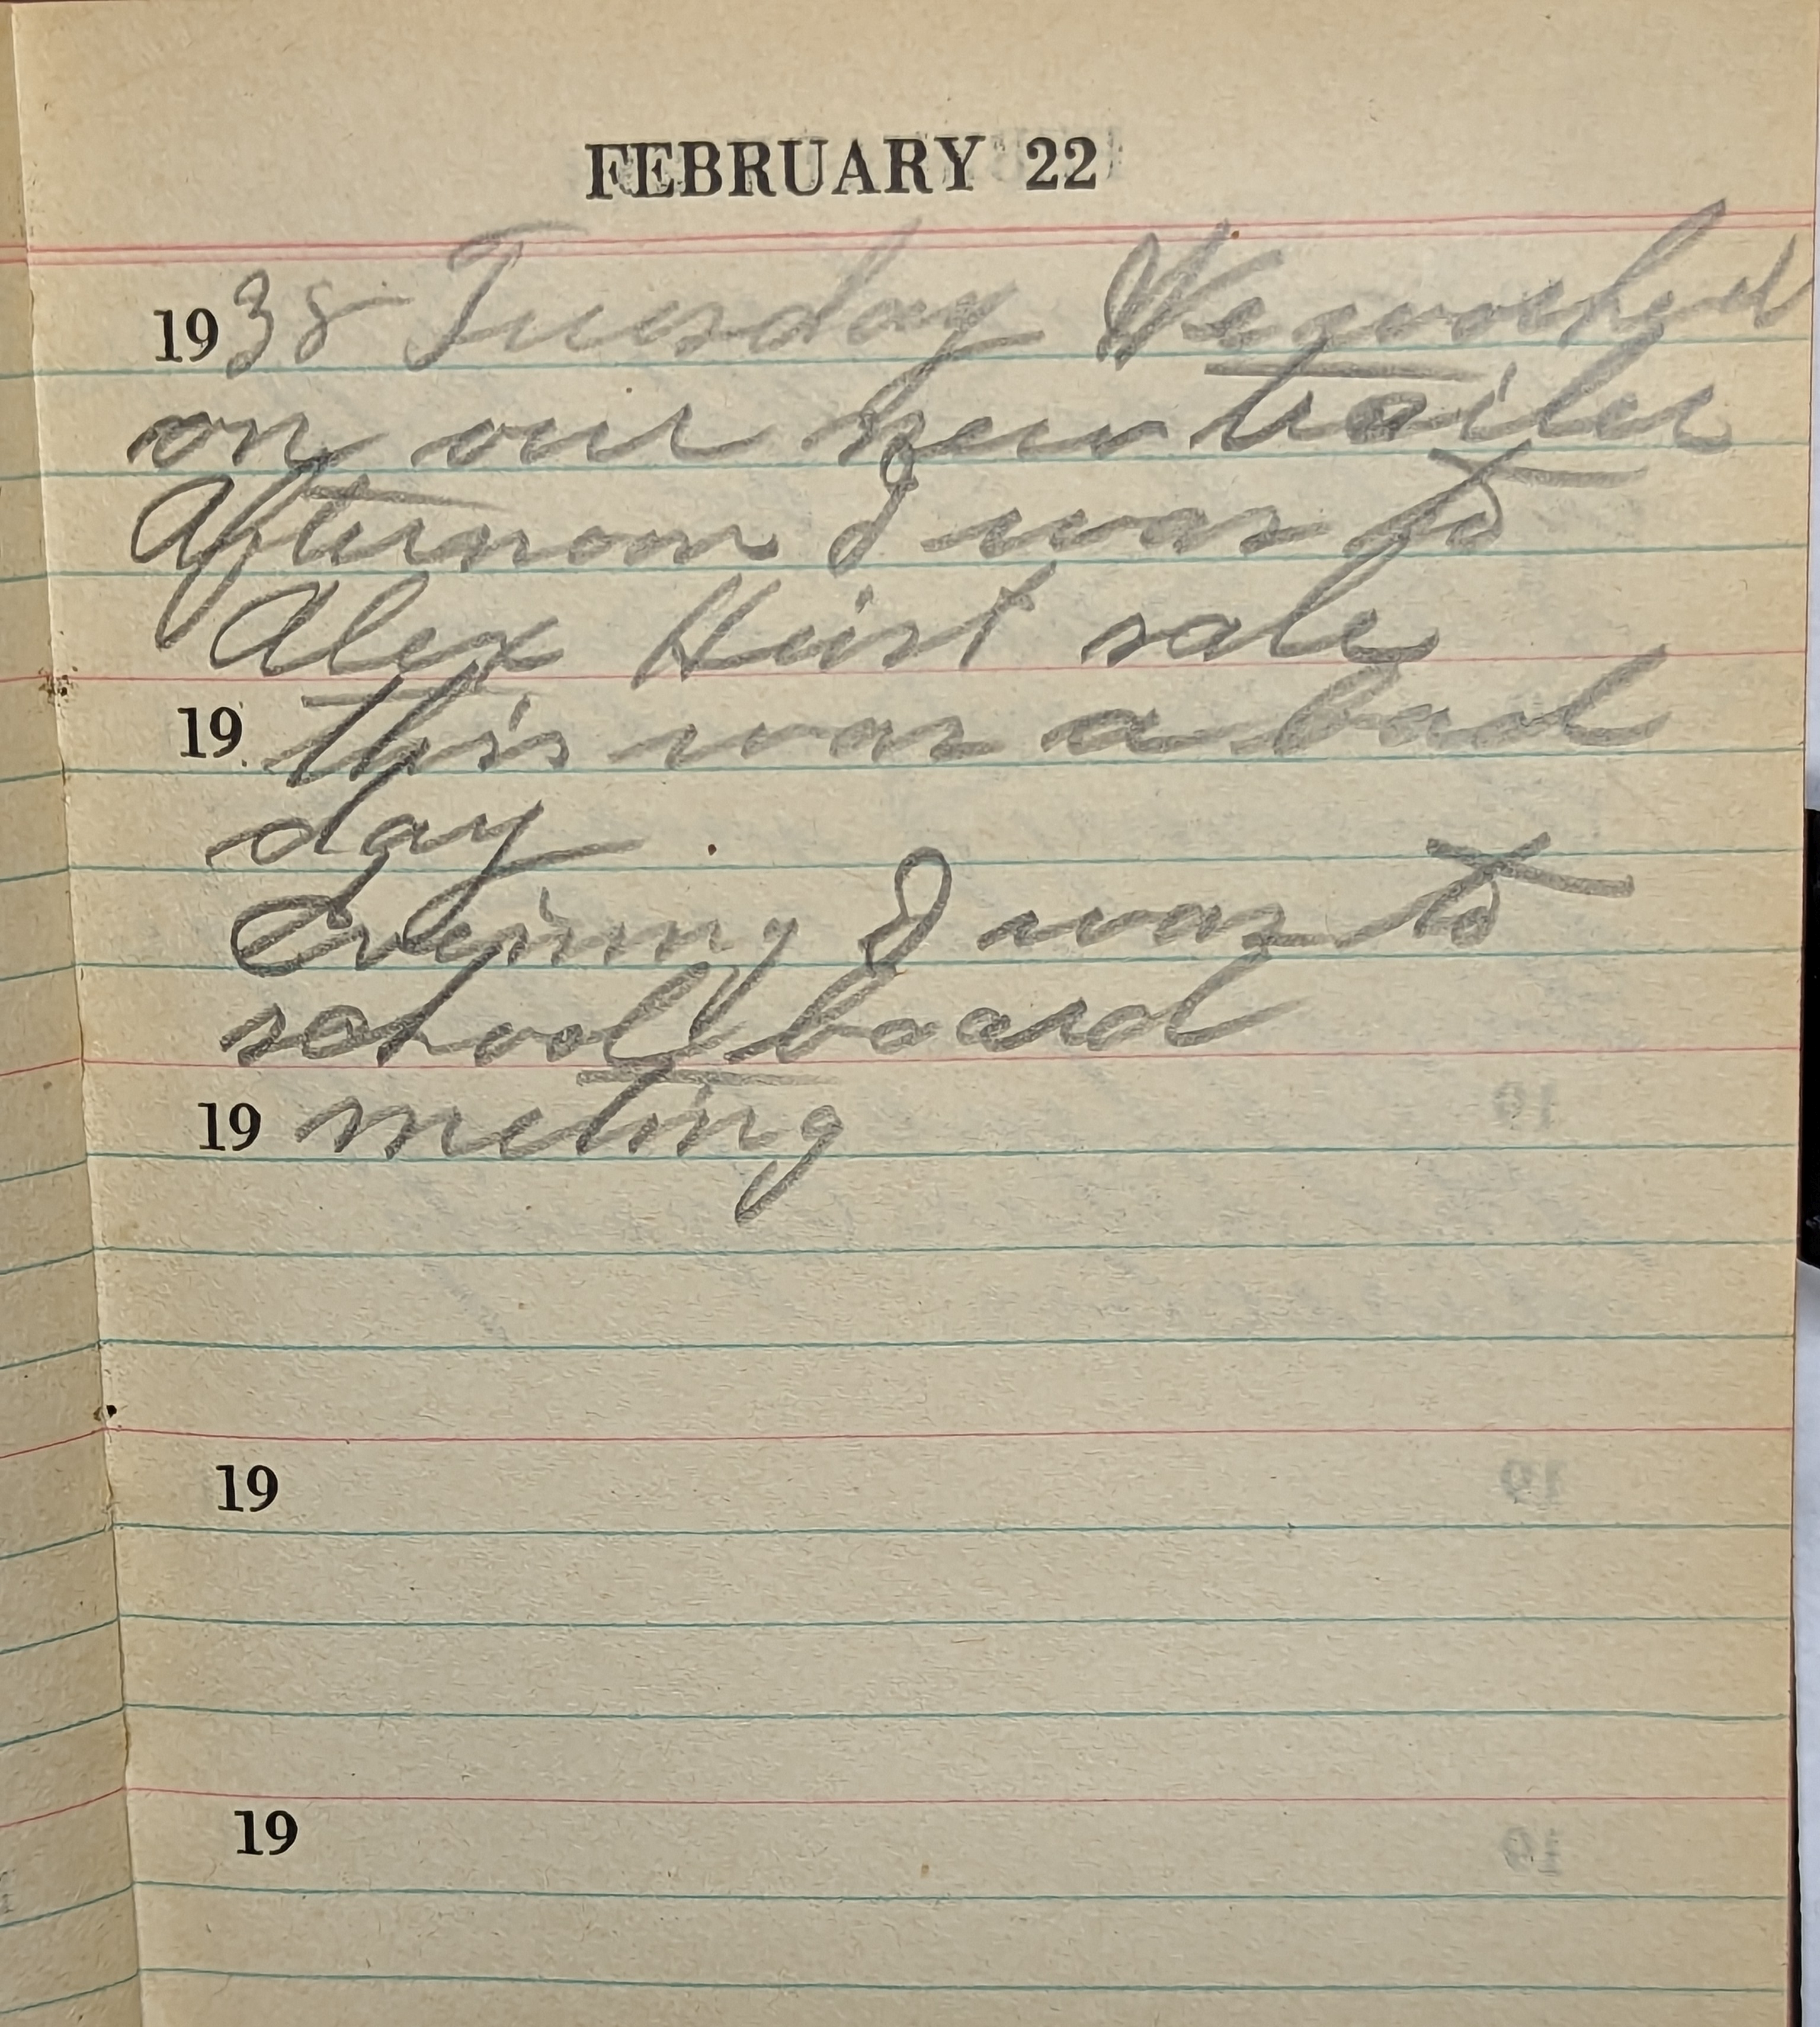 FEBRUARY 22
1938 Tuesday We worked
on our new trailer
Afternoon I was to
Alex Heist sale
19 this was a bad
day
Evening I was to
school board
19 meting
19
19